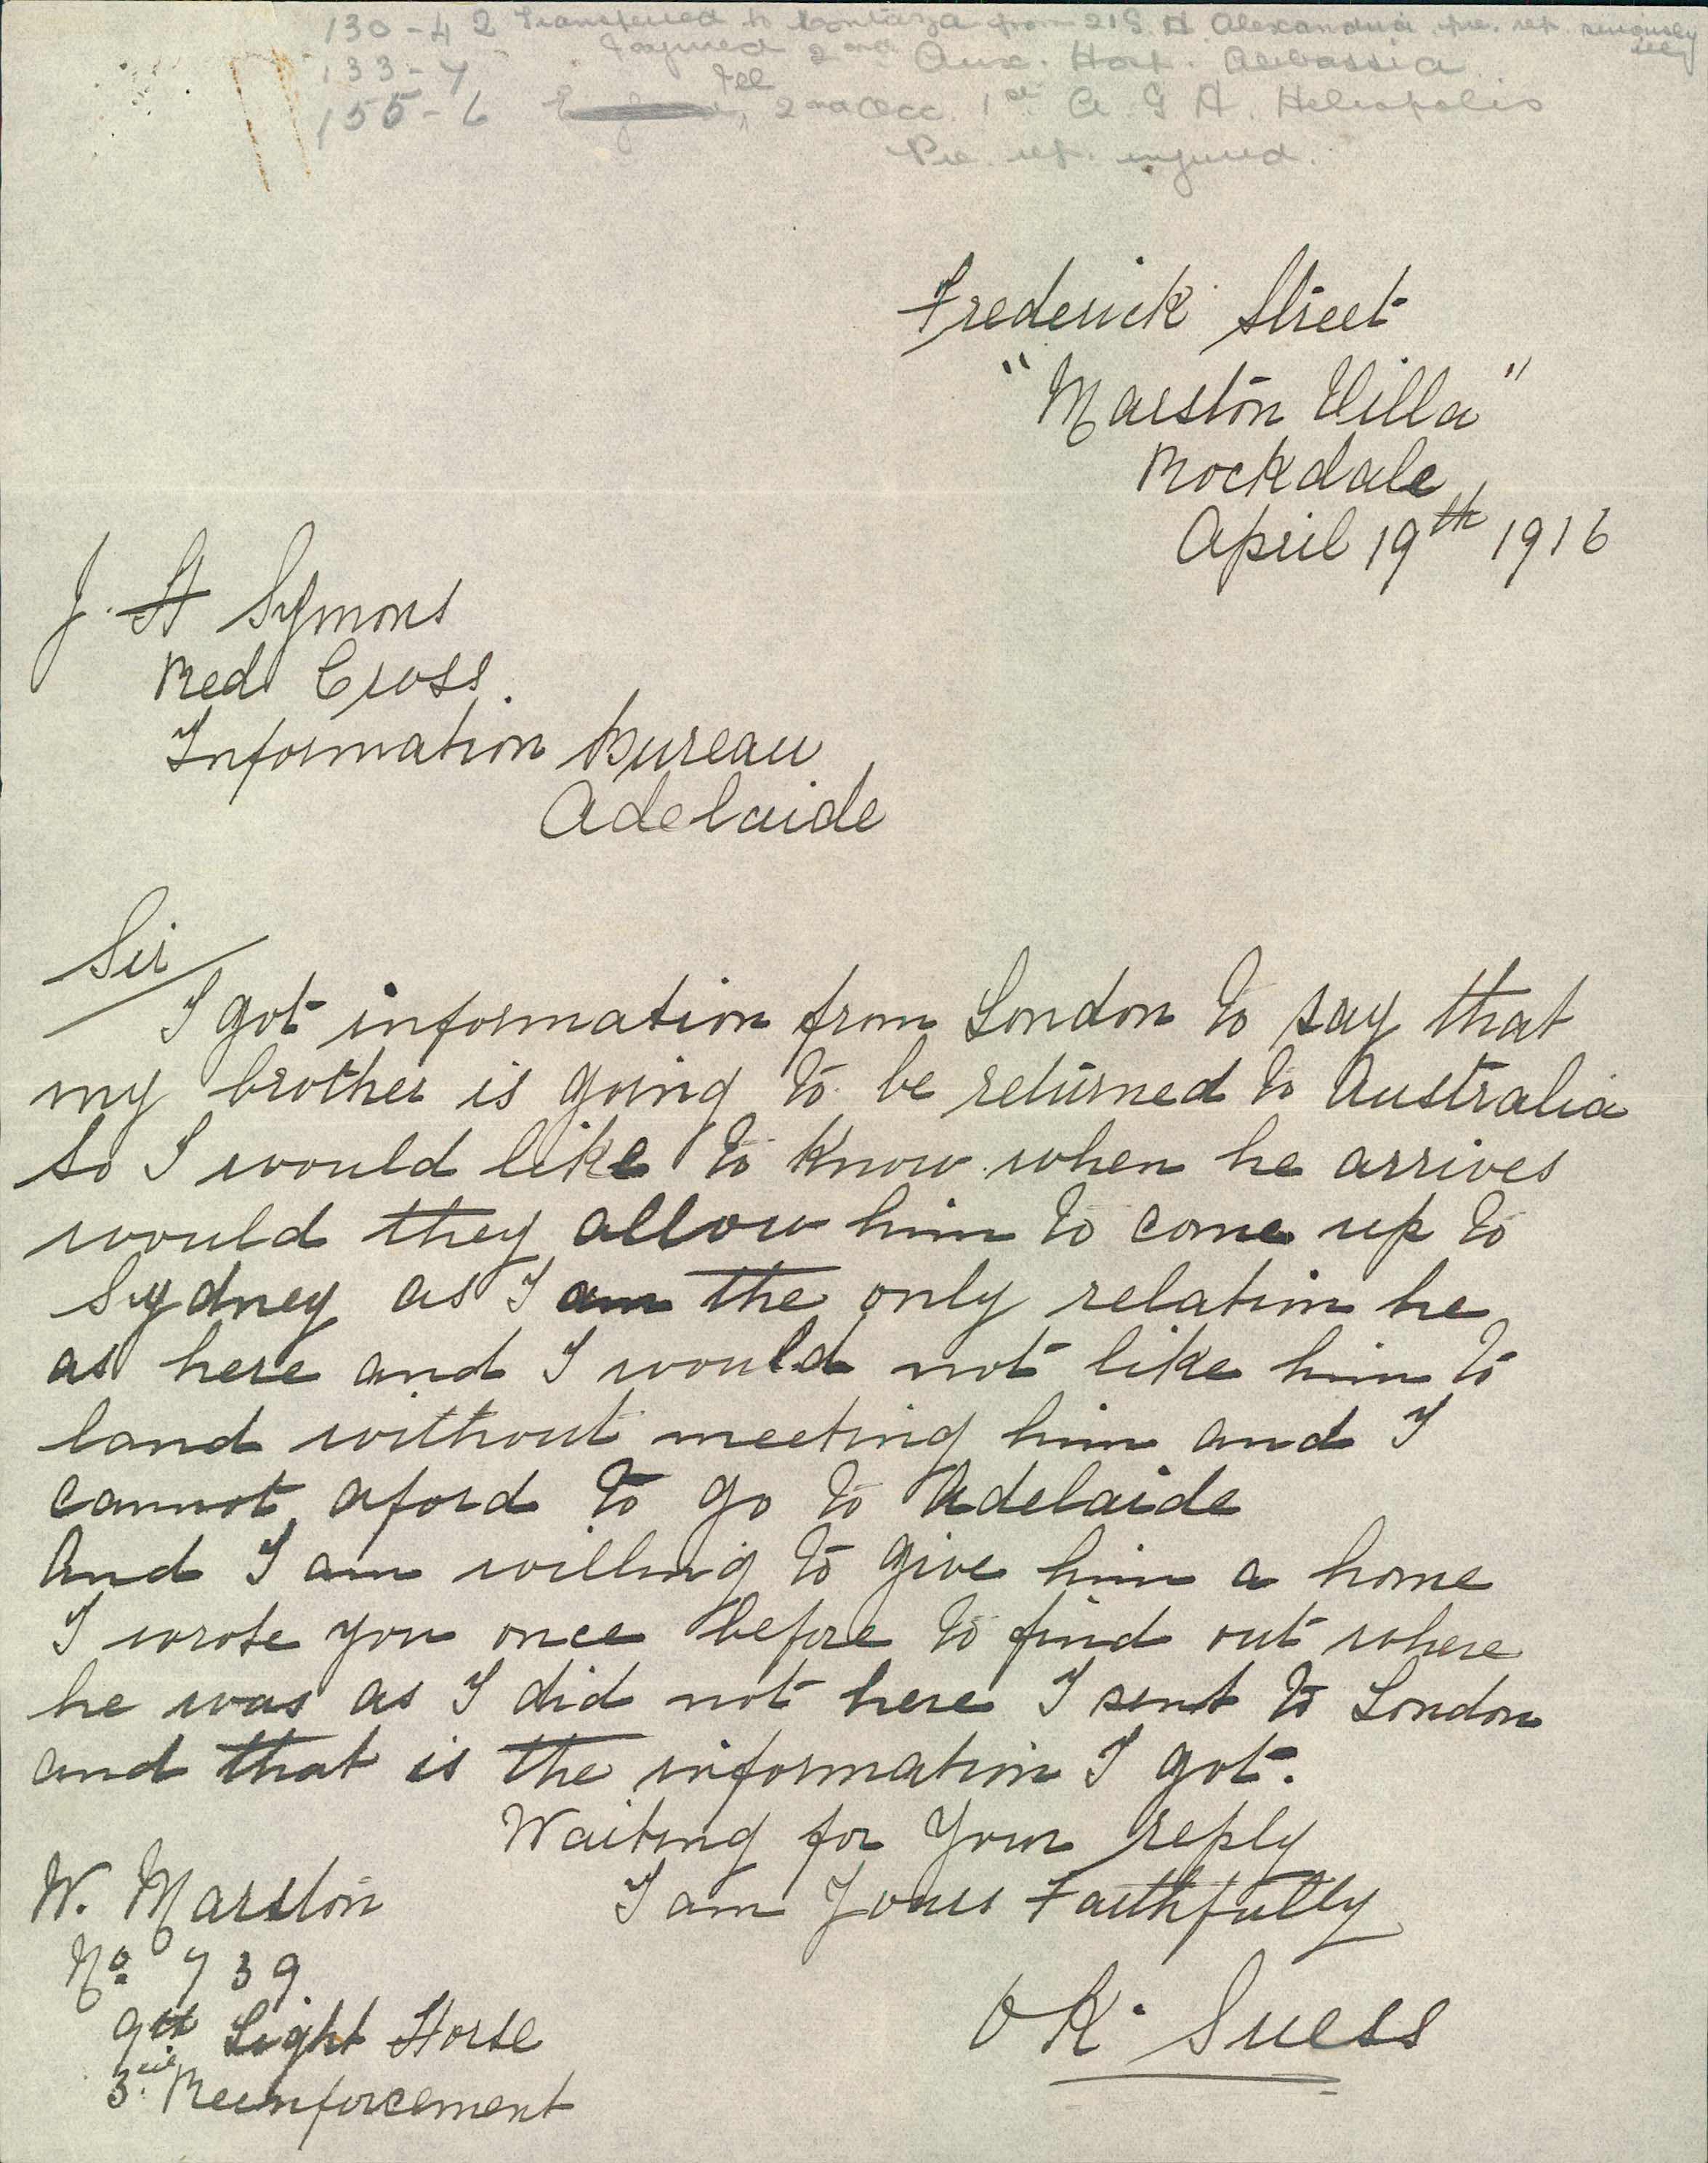 130-4 2 Transferred to Montaza from 21 G. H Alexandria. pre. rep. seriously
illy
133-7 Injured 2nd Aux. Hosp. Abbassia
Ill
155-6 2nd Occ. 1st A G H. Heliopolis
Pre. rep. injured.
Frederick Street
"Marston Villa"
Rockdale
April 19th 1916
J. H Symons
Red Cross.
Information bureau
Adelaide
Sir
I got information from London to say that
my brother is going to be returned to Australia
so I would like to know when he arrives
would they allow him to come up to
Sydney as I am the only relation he
as here and I would not like him to
land without meeting him and I
cannot aford to go to Adelaide
And I am willing to give him a home
I wrote you once before to find out where
he was as I did not here I sent to London
and that is the information I got.
Waiting for your reply
I am Yours Faithfully
K. Suess
W. Marston
No 739
9th Light Horse
3rd Reinforcement